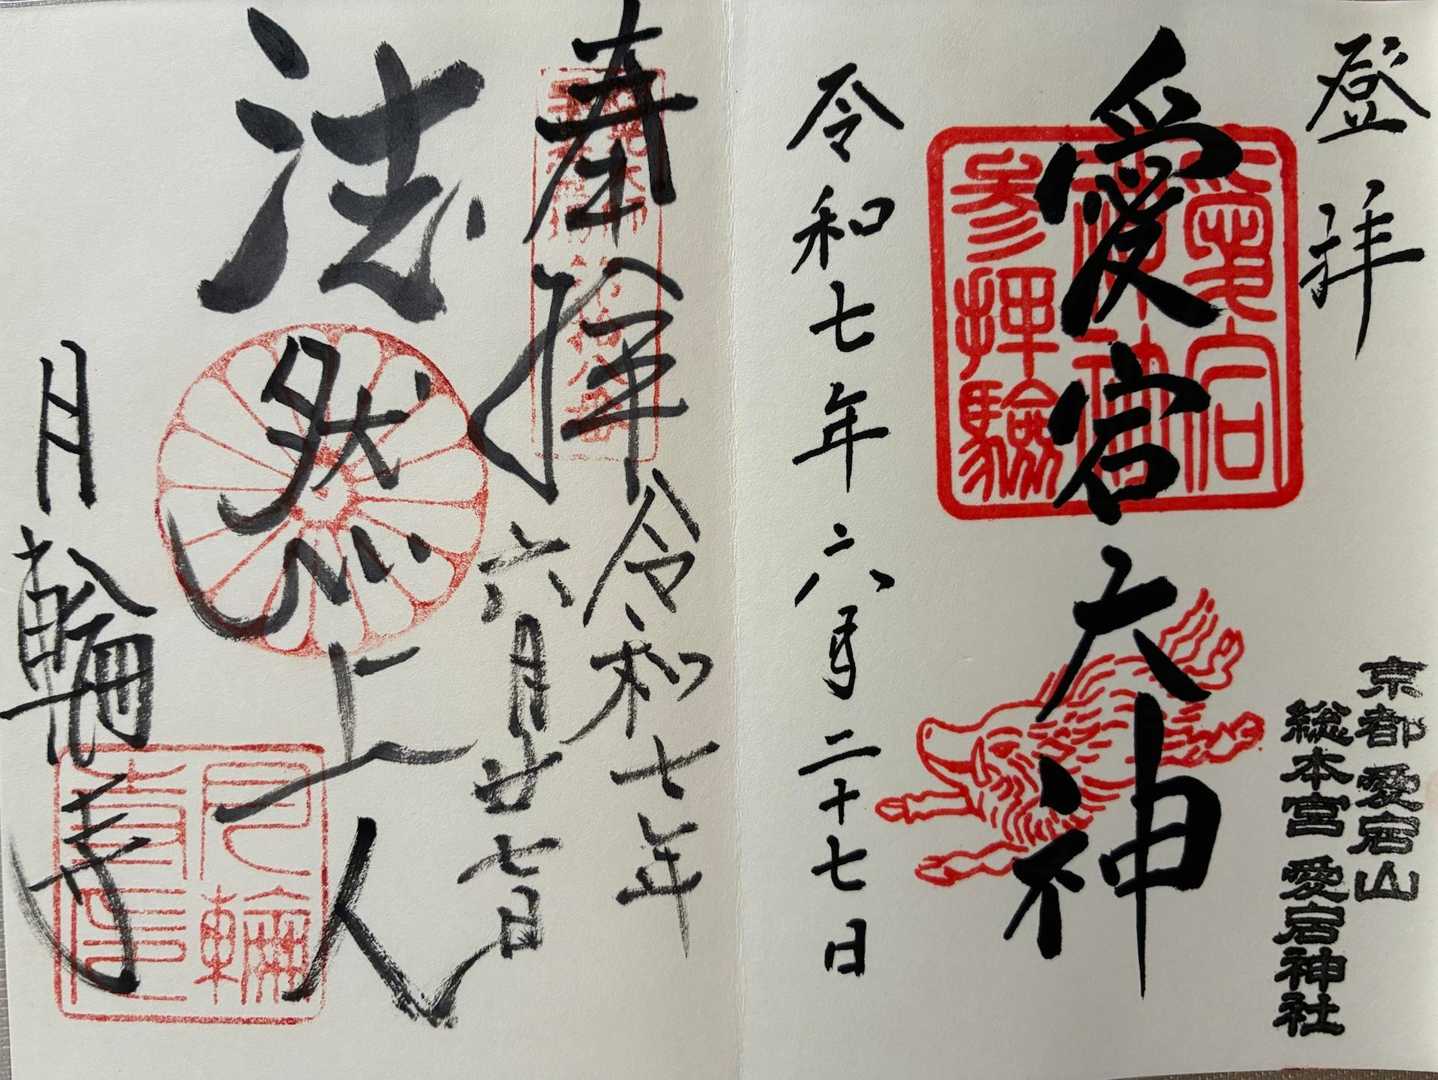 登拝
愛宕大神
令和七年六月二十七日
愛宕
神社
参拝験
京都 愛宕山
総本宮 愛宕神社
奉拝
令和七年
六月廿七日
法然上人
月輪寺
月輪
寺印